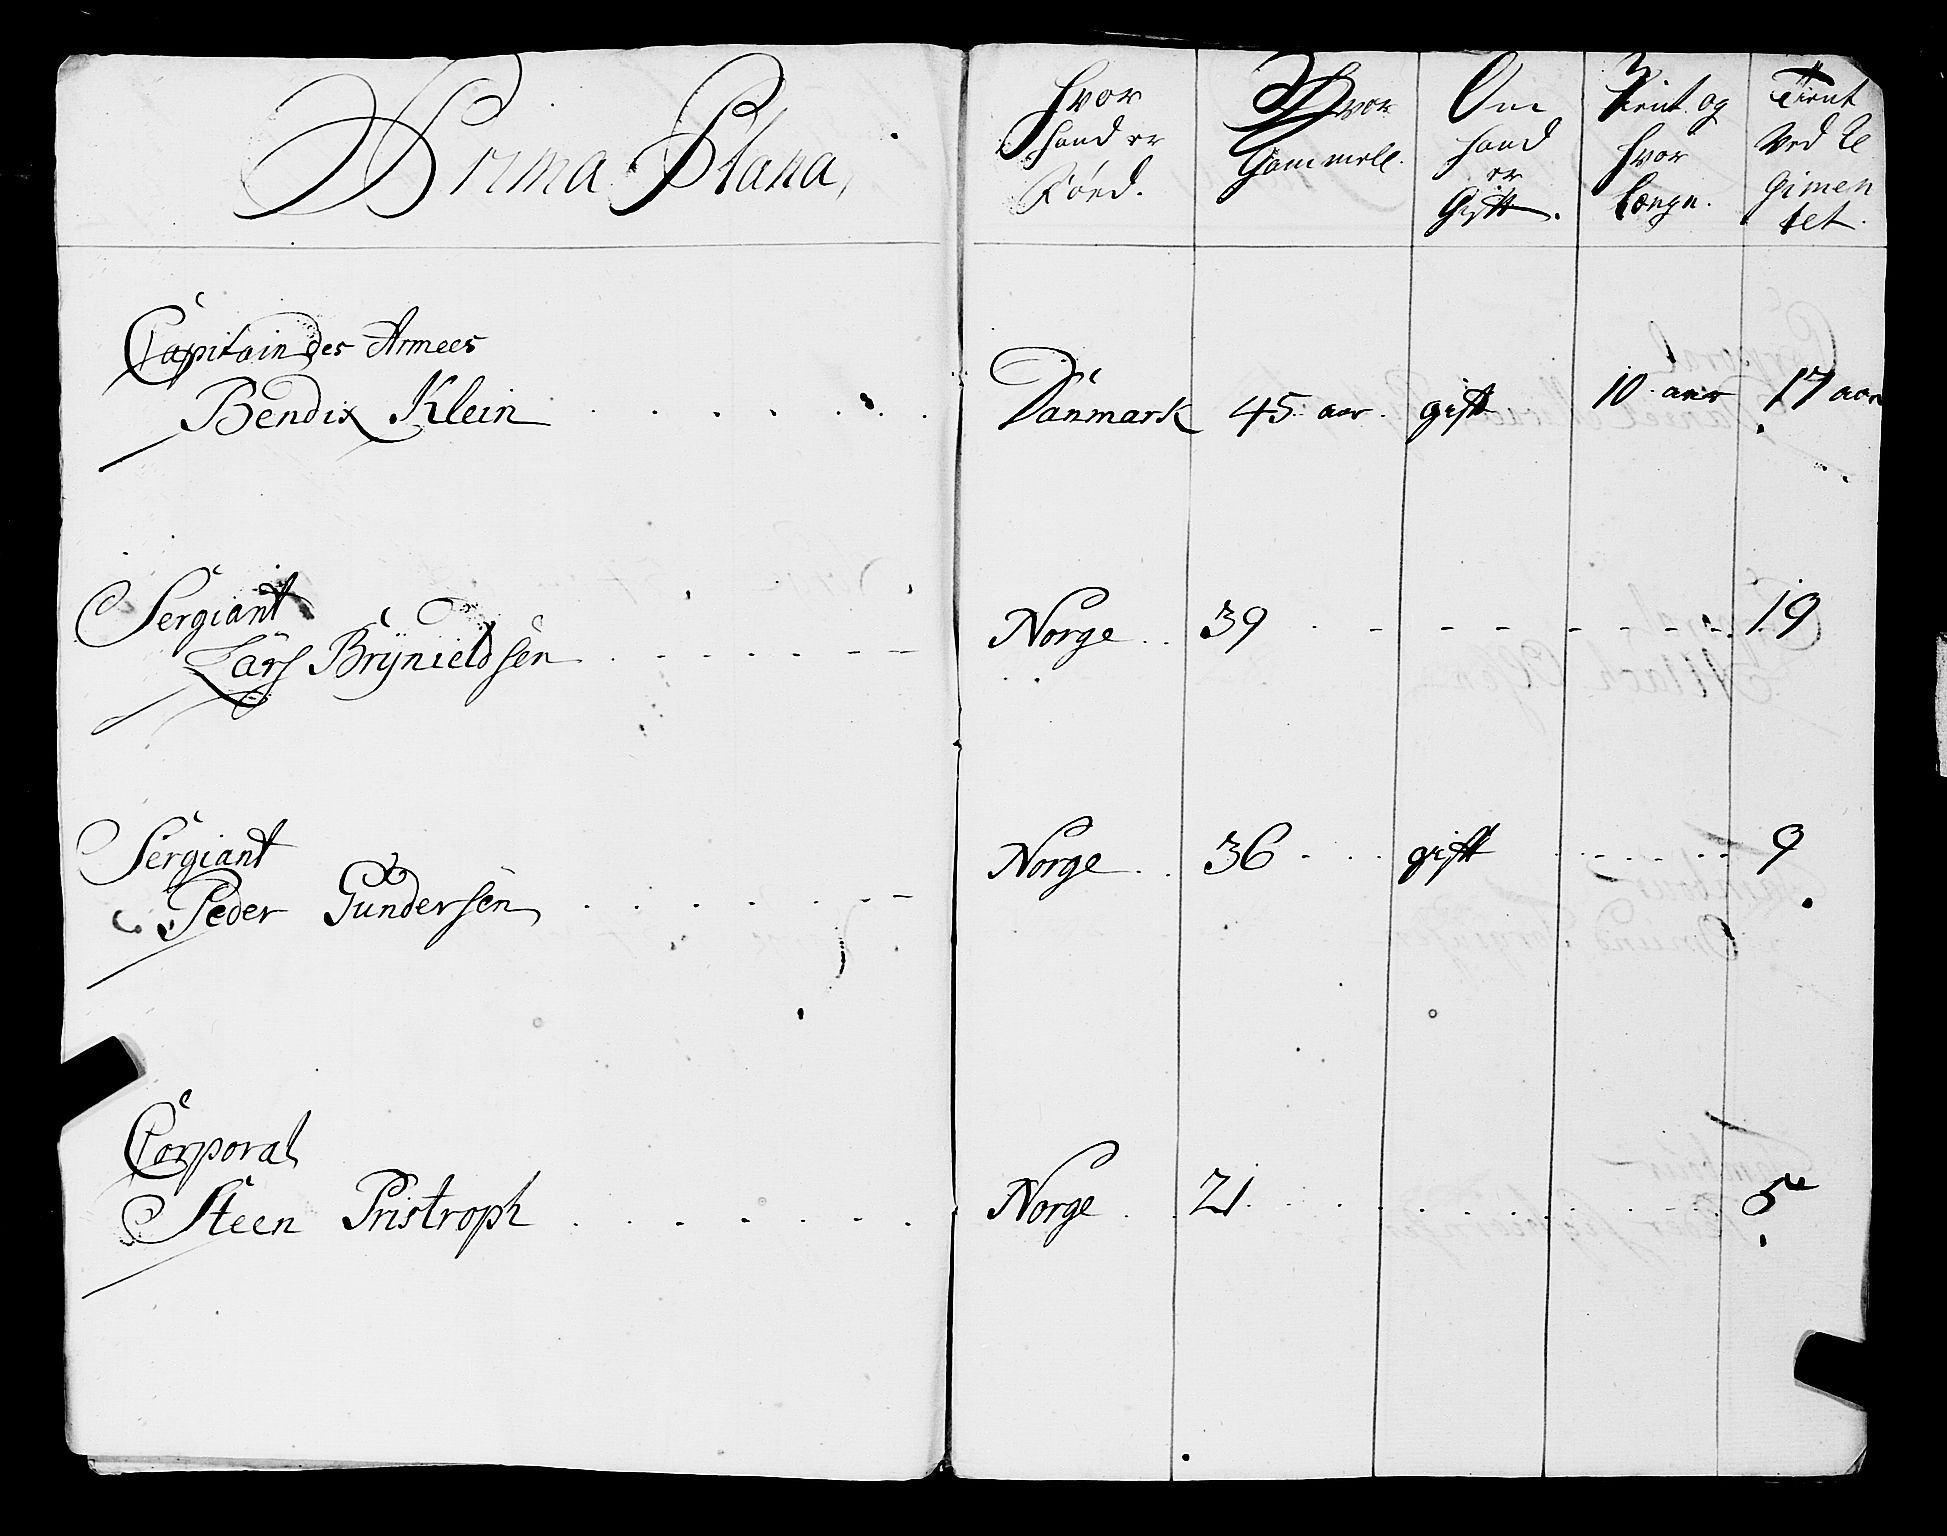 Prima Plana,
Hvor
hand er
Fød.
Hvor
Gammell.
Om
hand
er
Gift.
Tient og
hvor
længe.
Tient
ved Re
gimen
tet.
Capitain des Armees
Bendix Klein Danmark 45 aar gift 10 aar 17 aar
Sergiant
Lars Brÿnieldsen Norge 39 19
Sergiant
Peder Gundersen Norge 36 gift 9
Corporal
Steen Pristroph Norge 21 5